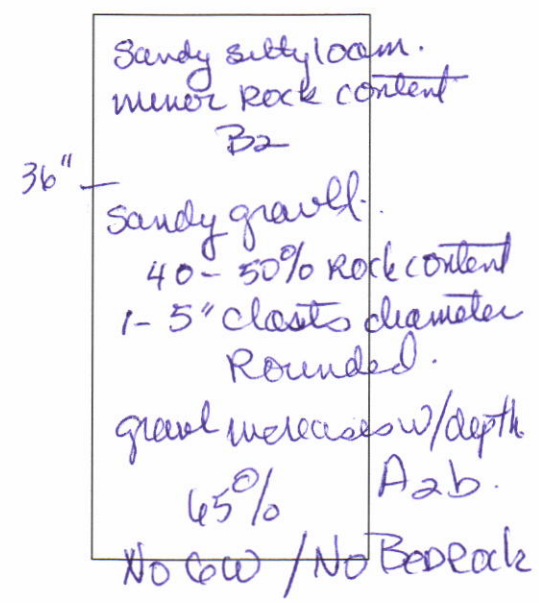 Sandy silty loam.
minor Rock content
B2
36"
Sandy gravel.
40-50% Rock content
1-5" clasts diameter
Rounded.
gravel increases w/depth
65% A2b.
No GW / No BedRock